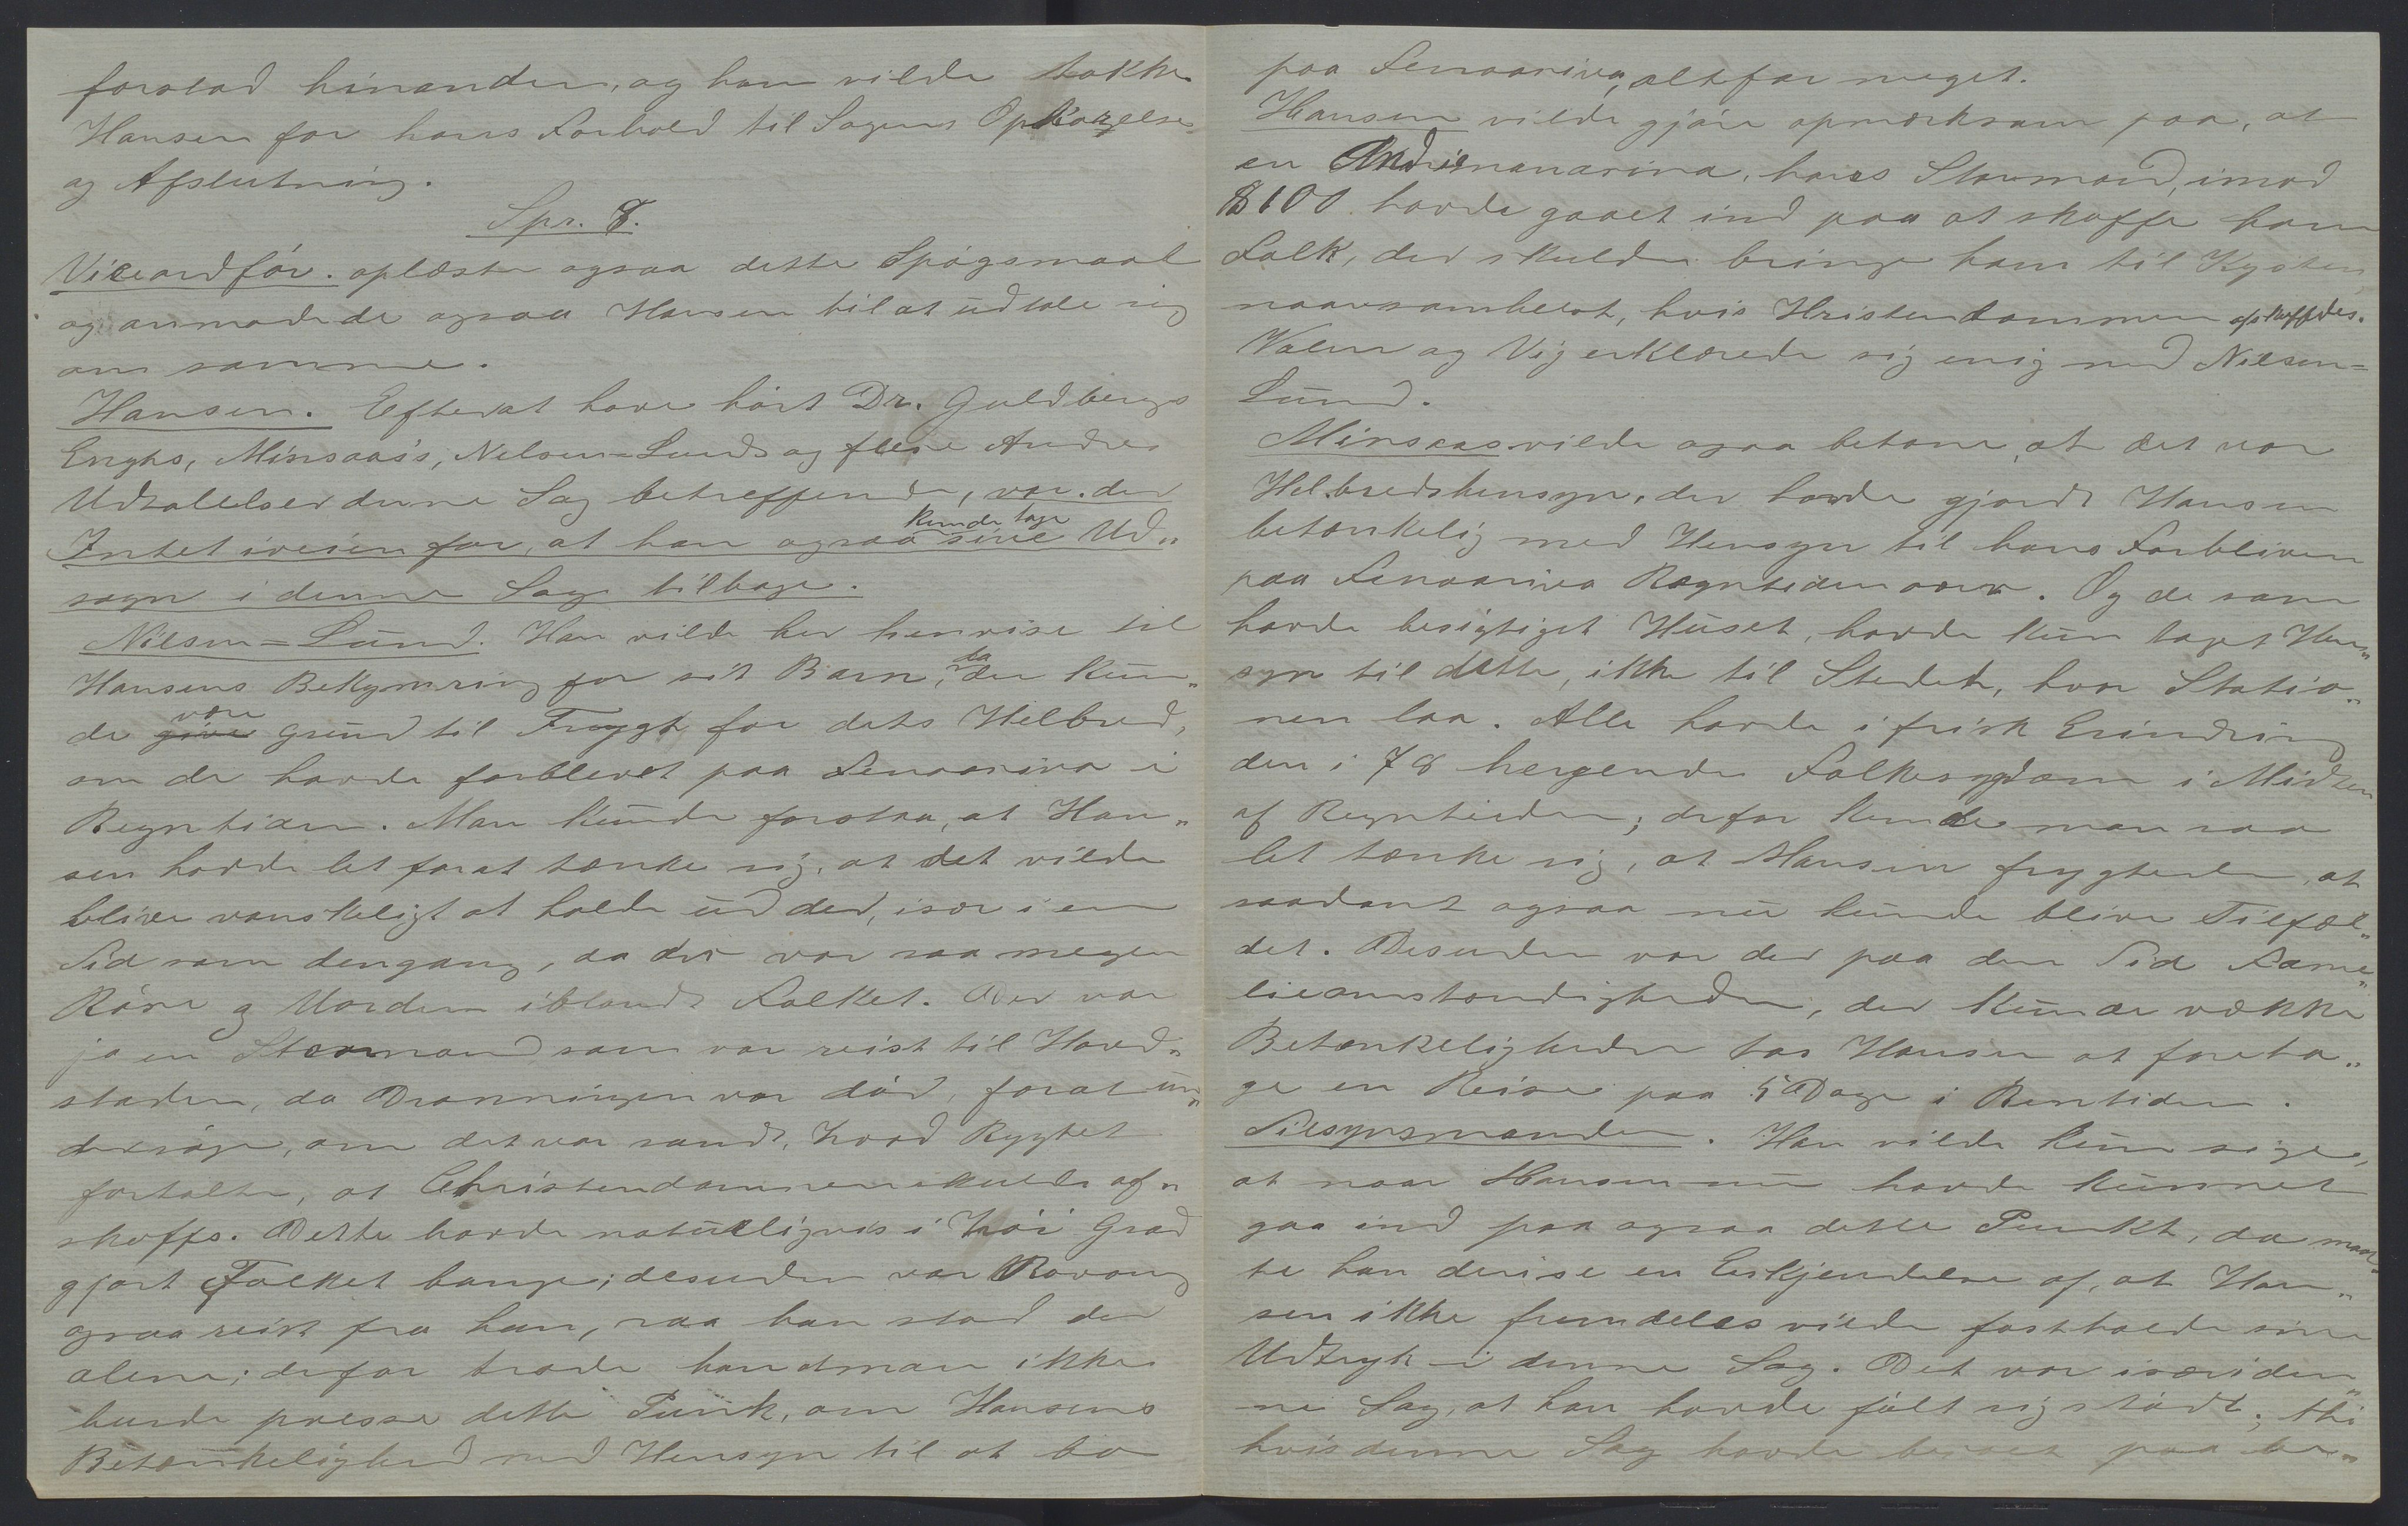 forstod hinanden, og han vilde takke
Hansen for hans Forhold til Sagens Opklarelse
og Afslutning.
Spr. 8.
Viceordför. oplæste ogsaa dette Spögsmaal
og anmodede ogsaa Hansen til at udtale sig
om samme.
Hansen. Efterat have hört Dr. Guldbergs
Enghs, Minsaas's, Nilsen=Lunds og flere Andres
Udtalelser denne Sag betreffende, var der
Intet iveien for, at han ogsaa kunde tage sine Ud„
sagn i denne Sag tilbage.
Nilsen=Lund. Han vilde her henvise til
Hansens Bekymring for sit Barn, da der kun„
de give være Grund til Frygt for dets Helbred,
om de havde forblevet paa Fenoarivo i
Regntiden. Man kunde forstaa, at Han„
sen havde let forat tænke sig, at det vilde
blive vanskeligt at holde ud der, især i en
Tid som dengang, da der var saa megen
Röre og Uorden iblandt Folket. Der var
jo en Stormand som var reist til Hoved„
staden, da Dronningen var död, forat un„
dersöge, om det var sandt, hvad Rygtet
fortalte, at Christendommen skulde af„
skaffes. Dette havde naturligvis i höi Grad
gjort Folket bange; desuden var Rosaas
ogsaa reist fra ham, saa han stod der
alene; derfor troede han at man ikke
burde presse dette Punk, om Hansens
Betænkelighed med Hensyn til at bo
paa Fenoarivo, altfor meget.
Hansen vilde gjöre opmærksom paa, at
en Andrianarina, hans Stormand, imod
$100 havde gaaet ind paa at skaffe ham
Folk, der skulde bringe ham til Kysten
naarsomhelst, hvis Kristendommen afskaffedes.
Walen og Vig erklærede sig enig med Nilsen=
Lund.
Minsaas vilde ogsaa betone, at det var
Helbredshensyn, der havde gjordt Hansen
betænkelig med Hensyn til hans Forbliven
paa Fenoarivo Regntiden over. Og de som
havde besigtiget Huset, havde kun taget Hen„
syn til dette, ikke til Stedet, hvor Statio„
nen laa. Alle havde i frisk Erindring
den i 78 hergende Folkesygdom i Midten
af Regntiden; derfor kunde man saa
let tænke sig, at Hansen frygtede, at
saadant ogsaa nu kunde blive Tilfæl„
det. Desuden var der paa den Tid Fame„
lieomstændigheder, der kunde vække
Betænkeligheder hos Hansen at foreta„
ge en Reise paa 5 Dage i Rentiden.
Tilsynsmanden. Han vilde kun sige,
at naar Hansen nu havde kunnet
gaa ind paa ogsaa dette Punkt, da maat„
te han derise en Erkjendelse af, at Han„
sen ikke fremdeles vilde fastholde sine
Udtryk i denne Sag. Det var især i den„
ne Sag, at han havde fölt sig stödt; thi
hvis denne Sag havde beroet paa be„